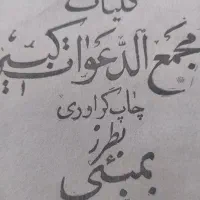 کلیات
مجمع الدعوات کبیر
چاپ گراوری
بطرز
بمبئی